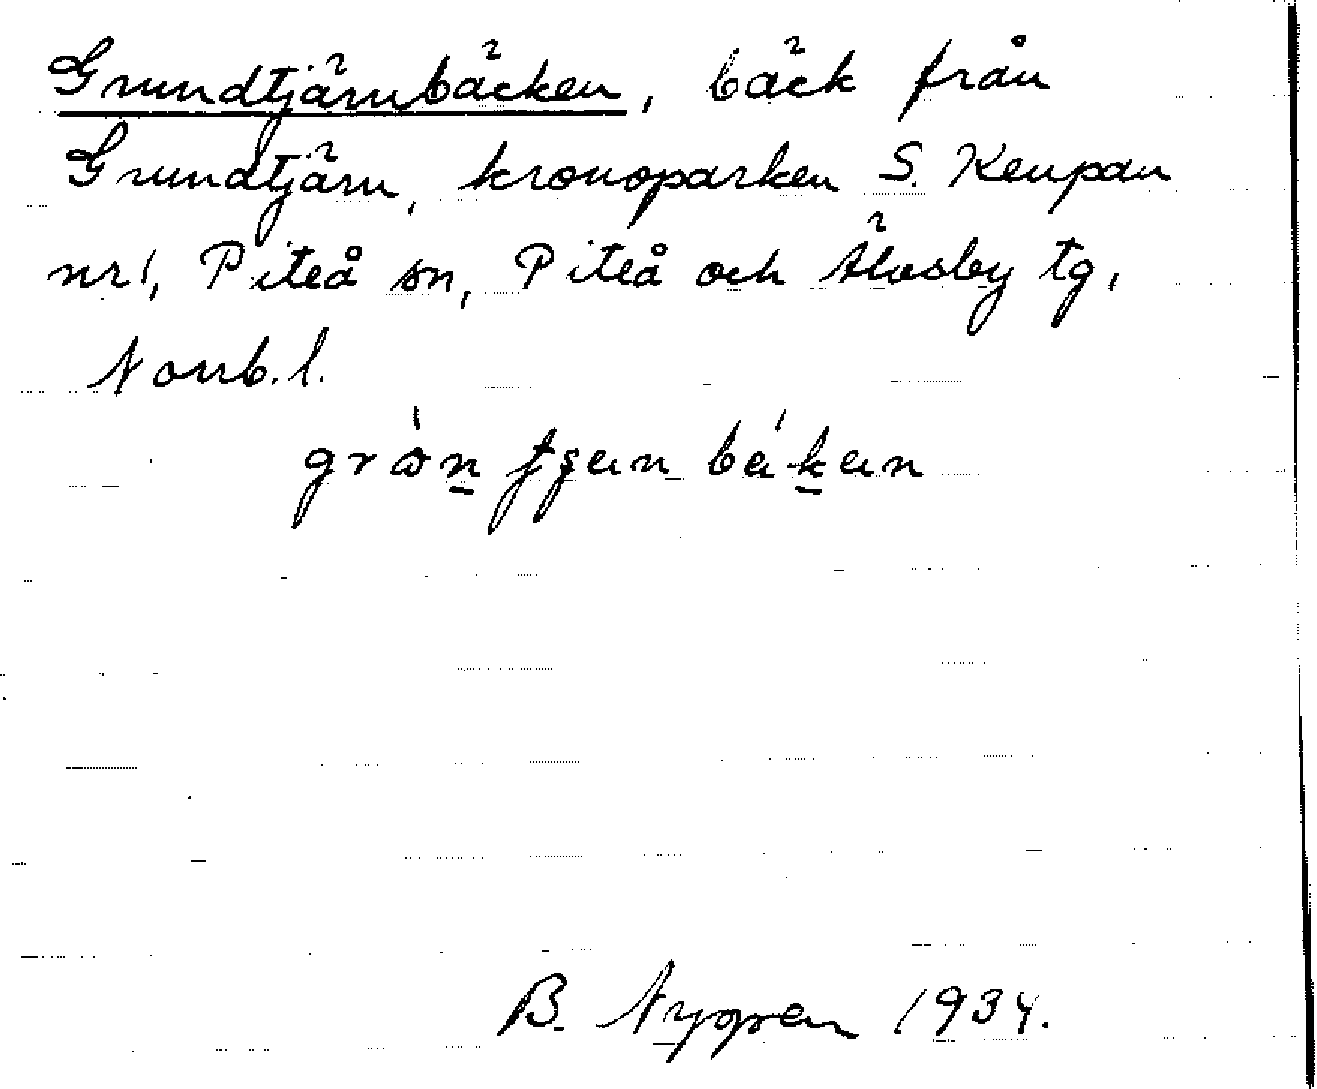 Grundtjärnbäcken, bäck från
Grundtjärn, kronoparken S. Keupan
nr 1, Piteå sn, Piteå och Älvsby tg,
Norrb. l.
B. Nygren 1934.